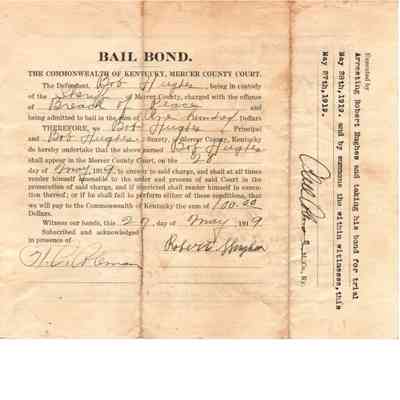 BAIL BOND.
THE COMMONWEALTH OF KENTUCKY, MERCER COUNTY COURT.
The Defendant Bob Hughes, being in custody
of the of Mercer County, charged with the offense
of Breach of Peace and
being admitted to bail in the sum of One Hundred Dollars
THEREFORE, we Bob Hughes Principal
and Bob Hughes Surety, of Mercer County,
do hereby undertake that the above named Bob Hughes
shall appear in the Mercer County Court, on the 28
day of May 1919, to answer to said charge, and shall at all times
render himself amenable to the order and process of said Court in the
prosecution of said charge, and if convicted shall render himself in execu-
tion thereof; or if he shall fail to perform either of these conditions, that
we will pay to the Commonwealth of Kentucky the sum of 100.00
Dollars.
Witness our hands, this 27 day of May 1919
Subscribed and acknowledged
in presence of
Robert Hughes
Executed by
Arresting Robert Hughes and taking his bond for trial
May 28th,1919. and by summons the within witnesses,this
May 27th,1919.